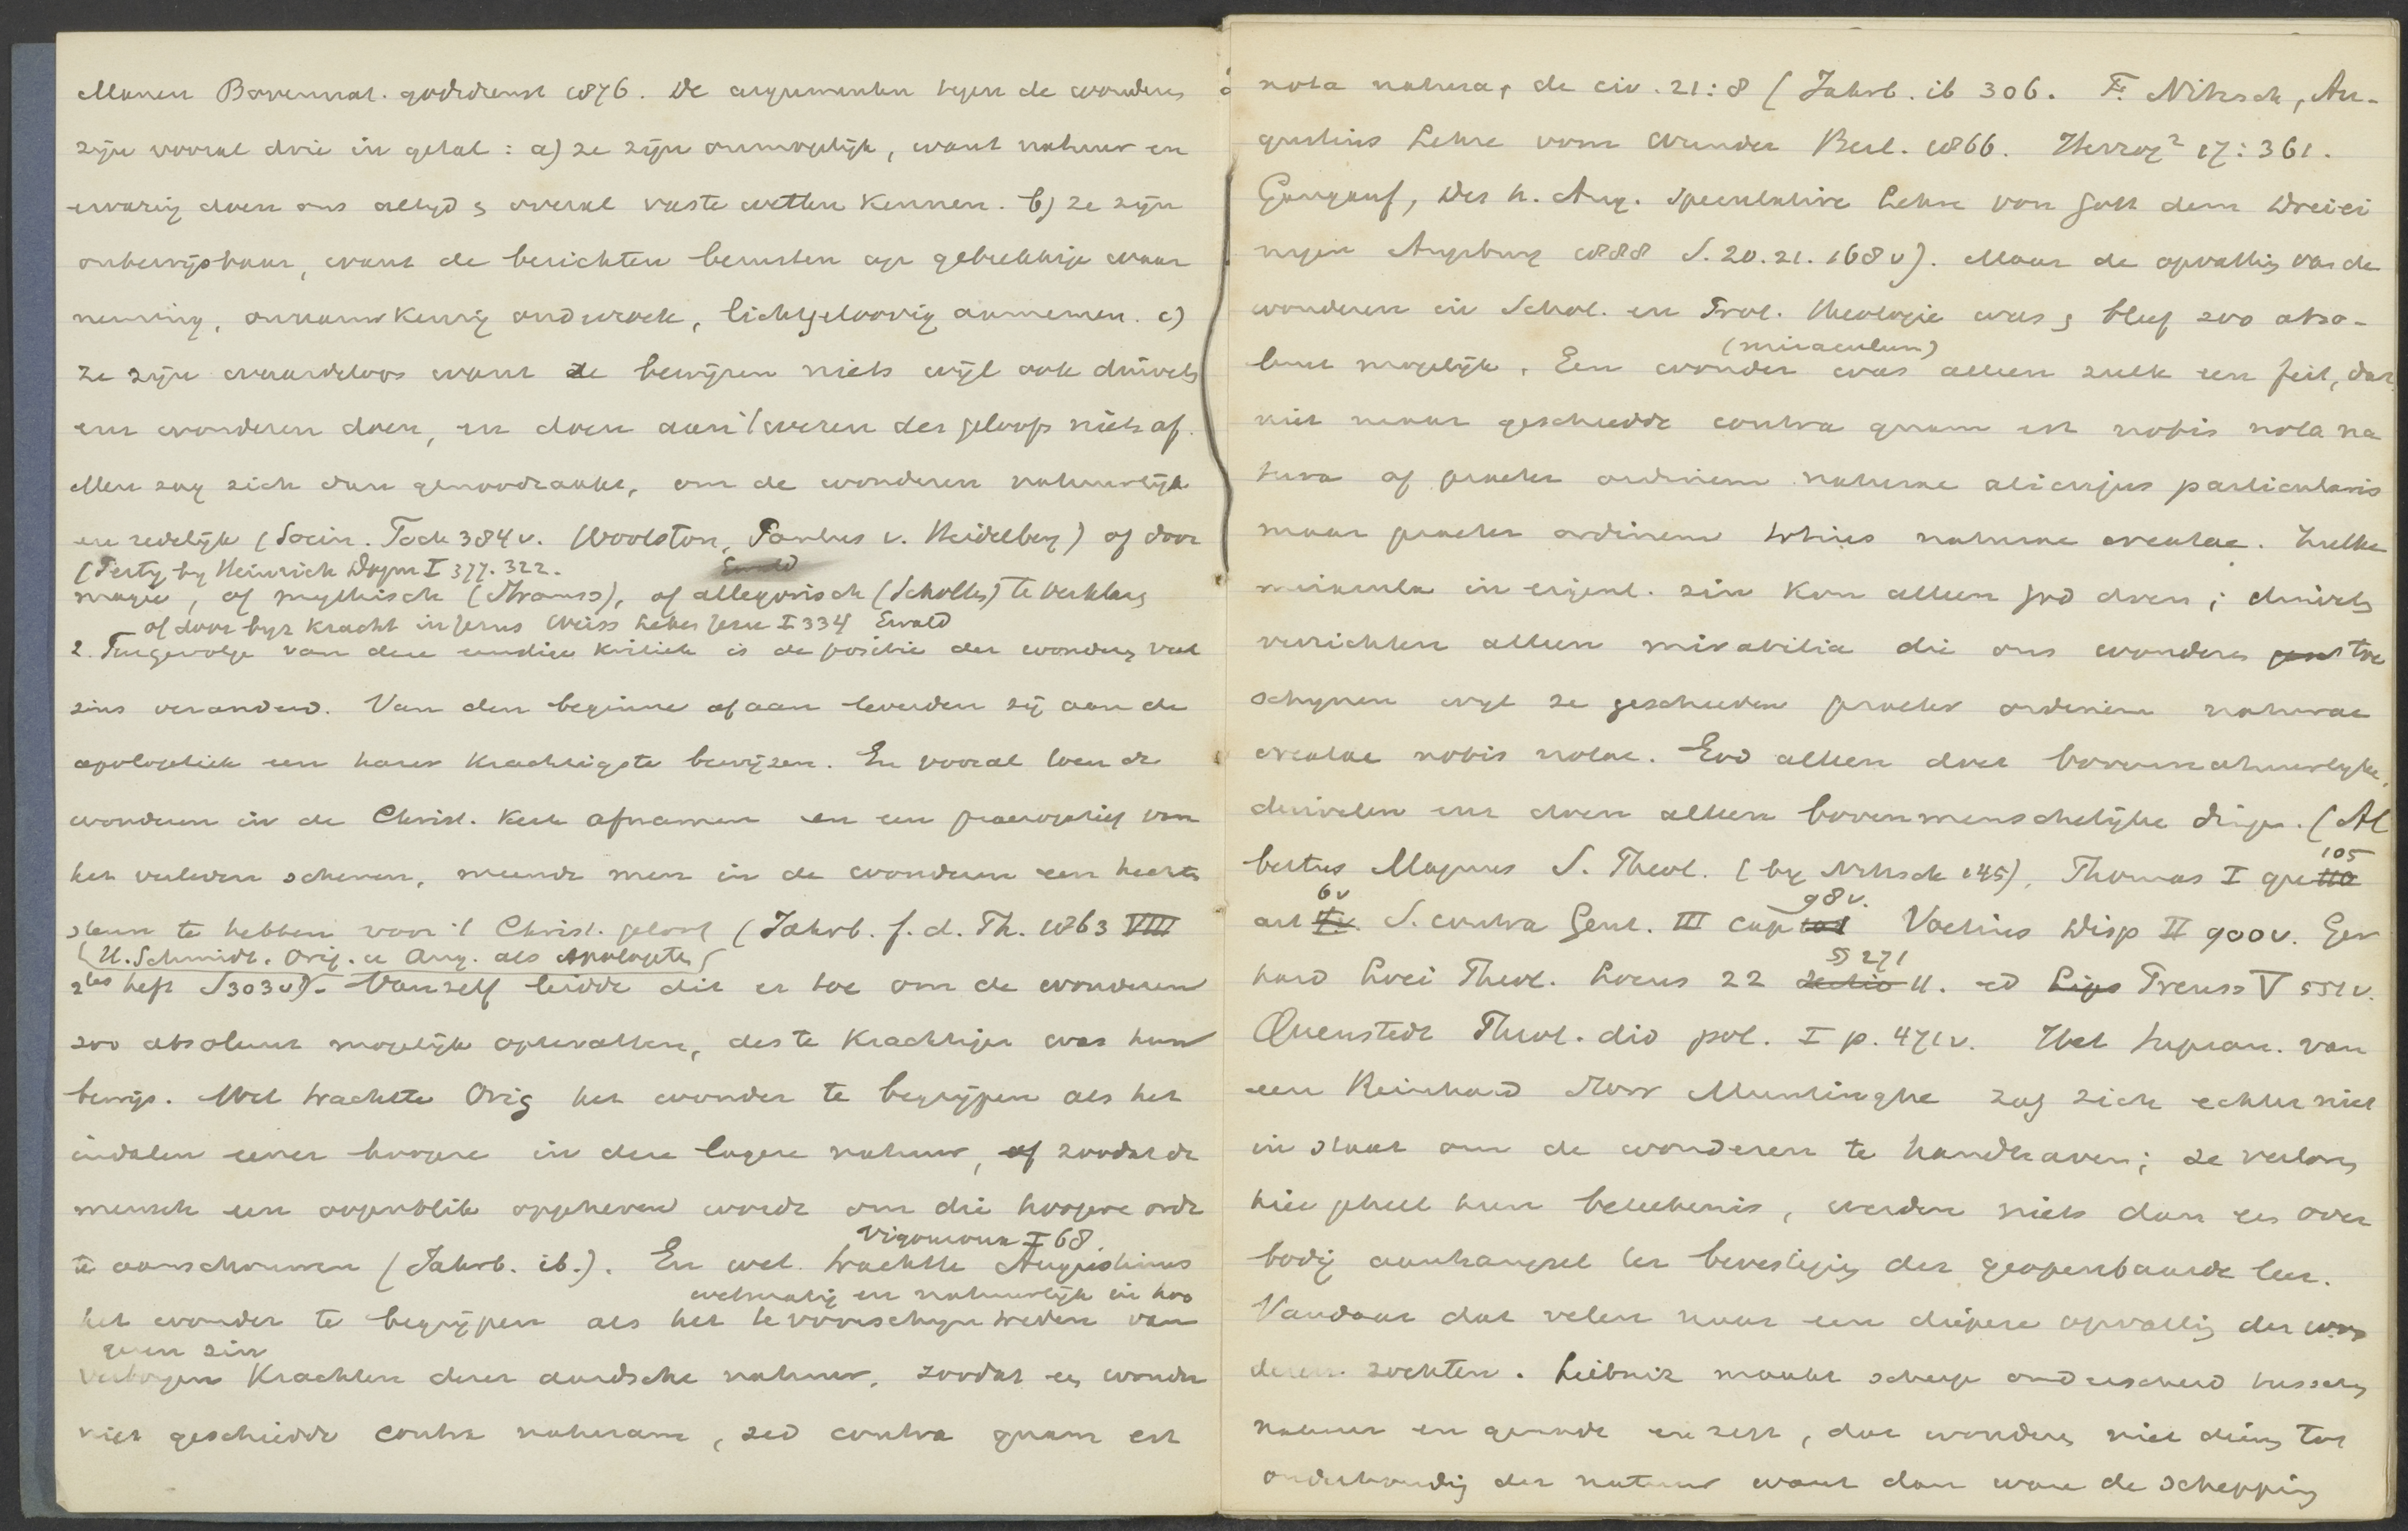 Manen Bovennat. godsdienst 1876. De argumenten tegen de wonderen
zijn vooral drie in getal : a) ze zijn onmogelijk, want natuur en
ervaring doen ons altijd & overal vaste wetten kennen. b) ze zijn
onbewijsbaar, want de berichten berusten op gebrekkige waar
neming, onnauwkeurig onderzoek, lichtgeloovig aannemen. c)
ze zijn waardeloos want ze bewijzen niets wijl ook duivels
enz wonderen doen, en doen aan 't wezen des geloofs niets af.
Men zag zich dan genoodzaakt, om de wonderen natuurlijk
en redelijk (Socin. Fock 384 v. Woolston, Paulus v. Heidelberg) of door
(Perty by Heinrich Dogm I 377. 322. Ewald
magie, of mythisch (Strauss), of allegorisch (Scholten) te verklaren
of door byz kracht in Jezus Weiss Leben Jesu I 334 Ewald
2. Tengevolge van deze ernstige kritiek is de positie der wonderen veel
zins veranderd. Van den beginne af aan leverden zij aan de
apologetiek een harer krachtigste bewijzen. En vooral toen de
wonderen in de Christ. kerk afnamen en een praerogatief van
het verleden schenen, meende men in de wonderen een hechten
steun te hebben voor 't Christ. geloof (Jahrb. f. d. Th. 1863 VIII
(H. Schmidt. Orig. u Aug. als Apologeten)
2tes heft S 303 v). Vanzelf leidde dit er toe om de wonderen
zoo absoluut mogelijk optevatten, des te krachtiger was hun
bewijs. Wel trachtte Orig het wonder te begrijpen als het
indalen eener hoogere in deze lagere natuur, of zoodat de
mensch een oogenblik opgeheven wordt om die hoogere orde
Vigouroux I 68.
te aanschouwen (Jahrb. ib.). En wel trachtte Augustinus
wetmatig en natuurlijk in hoo
het wonder te begrijpen als het te voorschijn treden van
geren zin
verborgen krachten dezer aardsche natuur, zoodat een wonder
niet geschiedde contra naturam, sed contra quam est
nota natura, de civ. 21:8 (Jahrb. ib 306. F. Nitzsch, Au-
gustins Lehre vom Wunder Berl. 1866. Herzog² 17:361.
Gangauf, Des h. Aug. speculative Lehre von Gott dem Dreiei
nigen Augsburg 1888 S. 20.21. 168 v). Maar de opvatting van de
wonderen in Schol. en Prot. theologie was & bleef zoo abso-
(miraculum)
luut mogelijk. Een wonder was alleen zulk een feit, dat
niet maar geschiedde contra quam est nobis nota na
tura of praeter ordinem naturae alicujus particularis
maar praeter ordinem totius naturae creatae. Zulke
miracula in eigenl. zin kon alleen God doen; duivels
verrichten alleen mirabilia die ons wonderen toe
schynen wyl ze geschieden praeter ordinem naturae
creatae nobis notae. God alleen doet bovennatuurlijke,
duivelen enz doen alleen bovenmenschelijke dingen. (Al
bertus Magnus S. Theol. (by Nitzsch 145), Thomas I qu 110
105
6v 98v.
art 4. S. contra Gent. III cap 101 Voetius Disp II 900v. Ger
§ 271
hard Loci Theol. Locus 22 sectio 11. ed Lips Preuss V 551 v.
Quenstedt Theol. did pol. I p. 471 v. Het supran. van
een Reinhard Storr Muntinghe zag zich echter niet
in staat om de wonderen te handhaven; ze verloren
hier geheel hun beteekenis, werden niets dan een over
bodig aanhangsel ter bevestiging der geopenbaarde leer.
Vandaar dat velen naar een diepere opvatting der won
deren zochten. Leibniz maakt scherp onderscheid tusschen
natuur en genade en zegt, dat wonderen niet dienen tot
onderhouding der natuur want dan ware de schepping